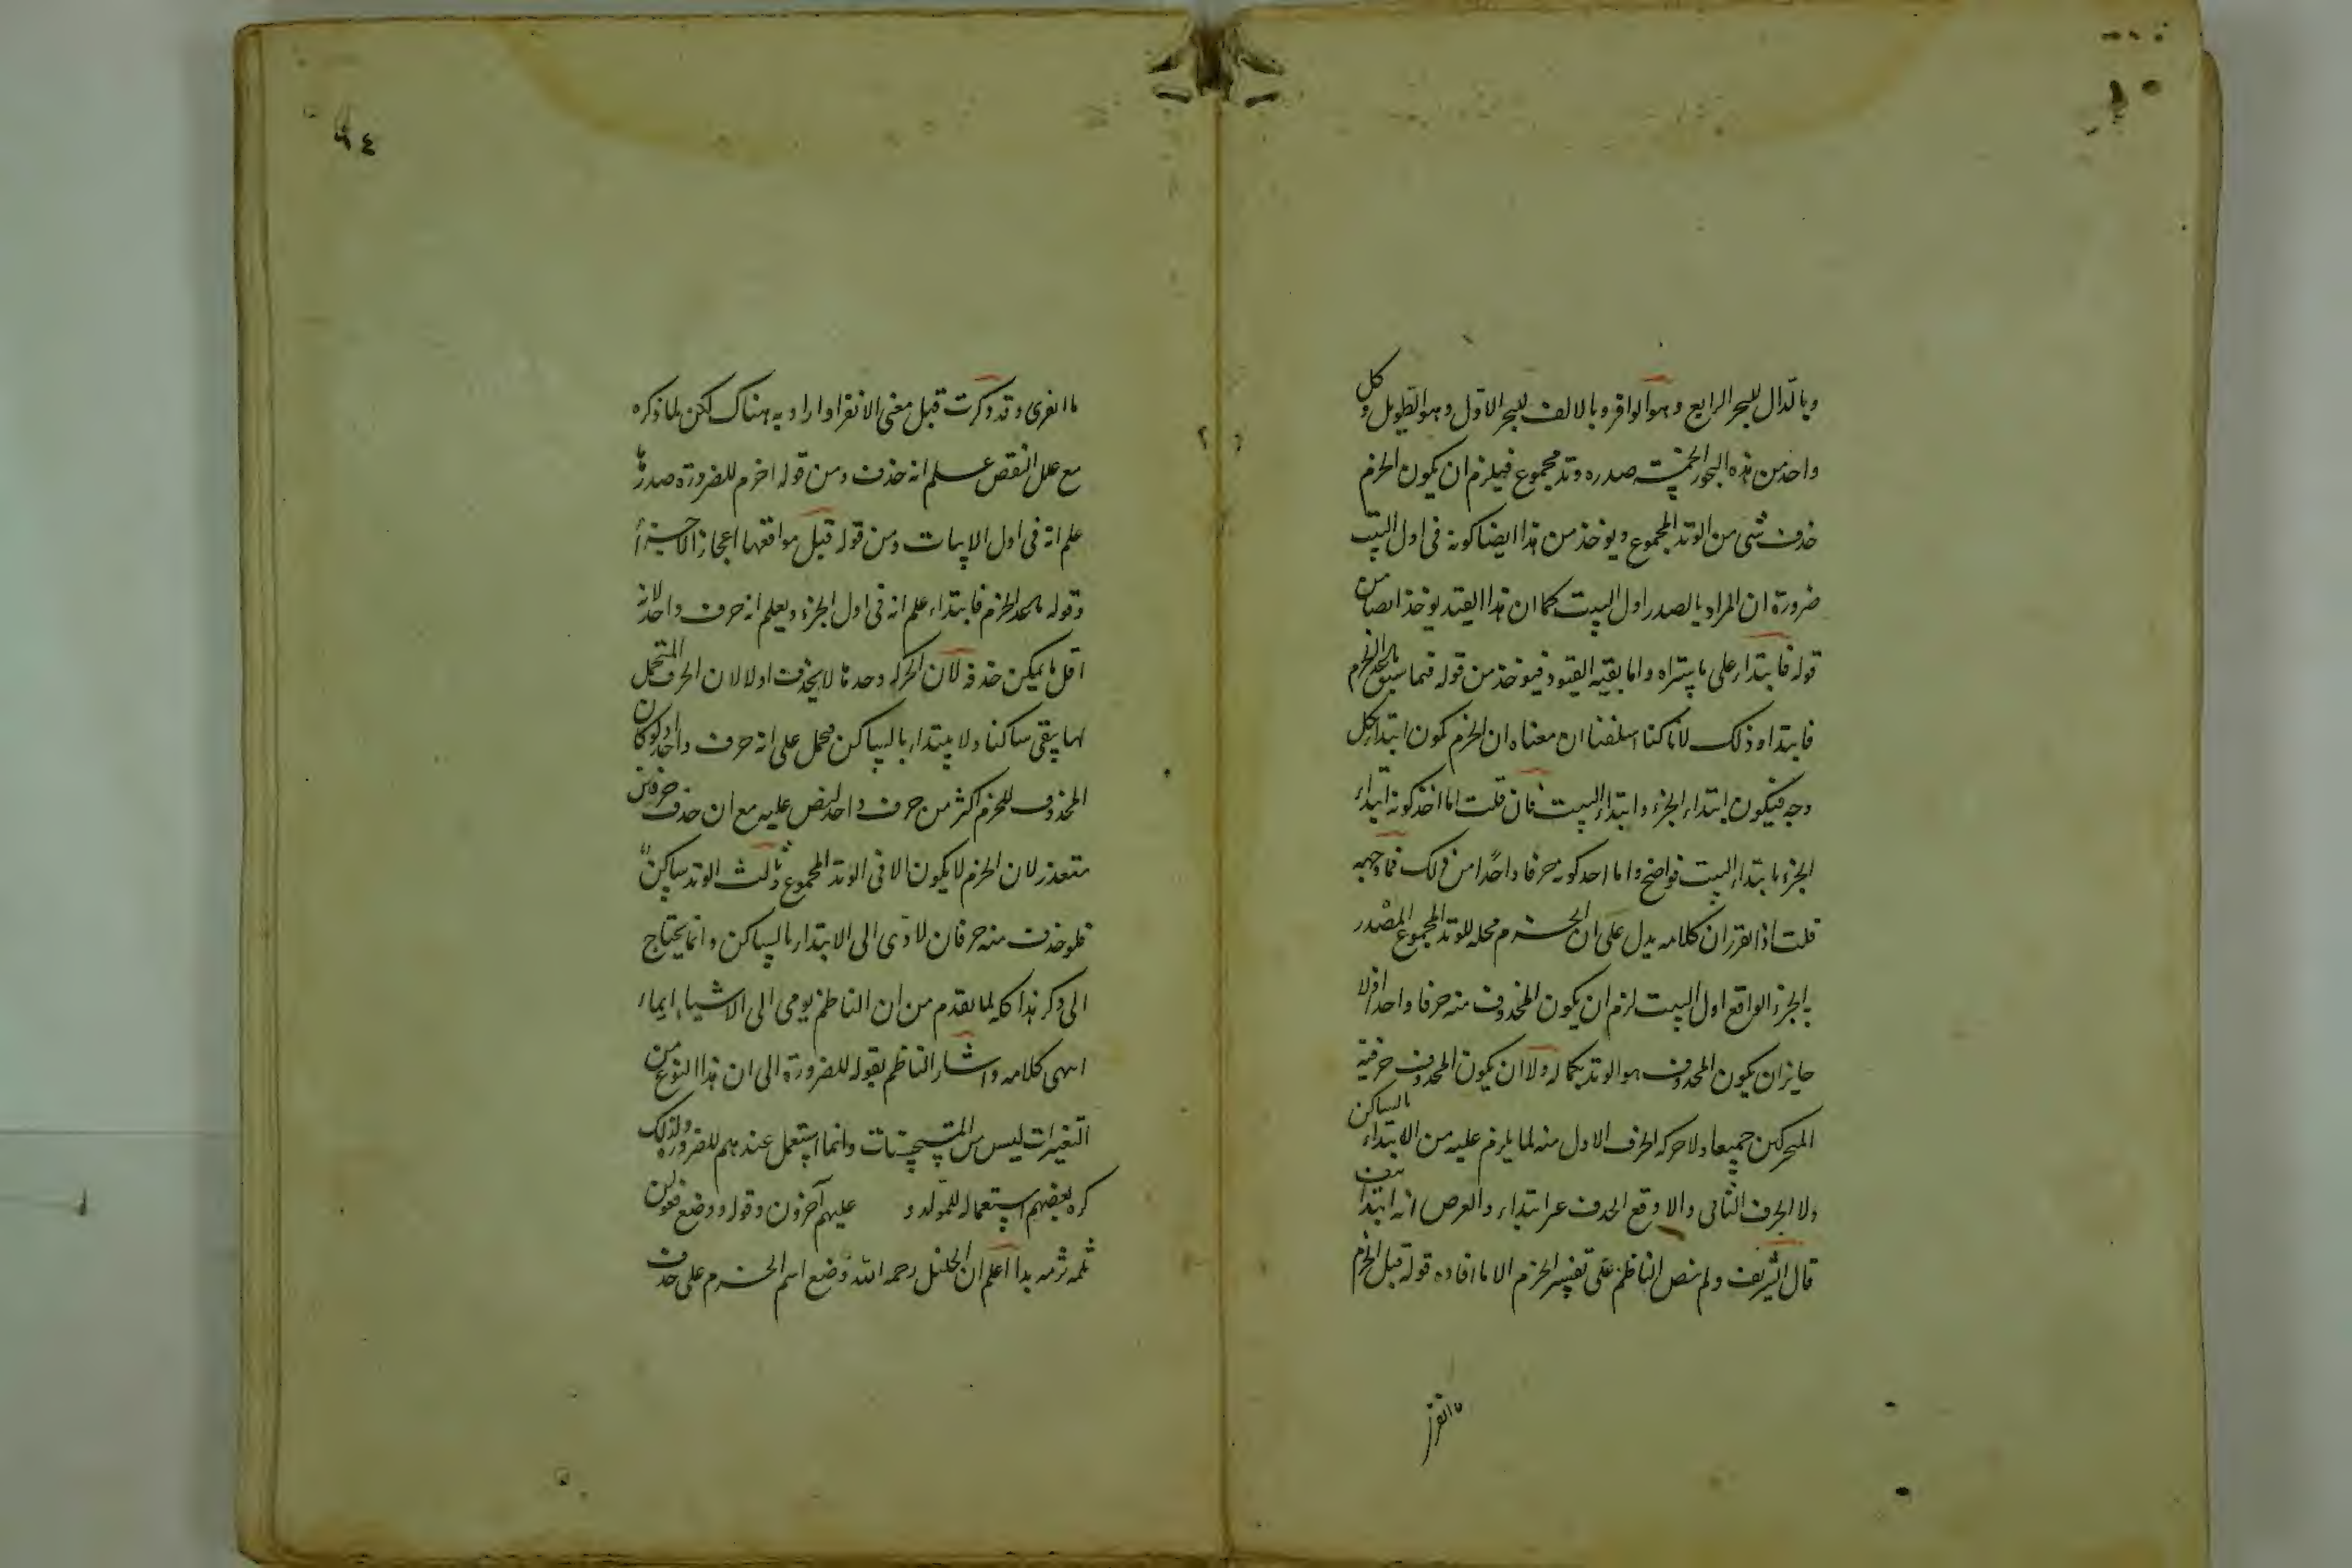 وبالدال للبحر الرابع وهو الوافر وبالالف للبحر الاول وهو الطويل وكل
واحد من هذه البحور الخمسة صدره وتد مجموع فيلزم ان يكون الخرم
حذف شى من الوتد المجموع ويوخذ من هذا ايضا كونه فى اول البيت
ضرورة ان المراد بالصدر اول البيت كما ان هذا القيد يوخذ ايضا من
قوله فابتداء على ما ستراه واما بقية القيود فيوخذ من قوله فيما سبق الخرم
فابتداء وذلك لانا كنا اسلفنا ان معناه ان الخرم يكون ابتداء كل
وجه فيكون ابتداء الجزء وابتداء البيت فان قلت اما اخذ كونه ابتداء
الجزء ابتداء البيت فواضح واما اخذ كونه حرفا واحدا من ذلك فما وجهه
قلت اذا تقرر ان كلامه يدل على ان الخرم محله للوتد المجموع المصدر
به الجزء الواقع اول البيت لزم ان يكون المحذوف منه حرفا واحدا اذ لا
جايز ان يكون المحذوف هو الوتد بكماله ولا ان يكون المحذوف حرفيه
المتحركين جميعا ولا حركة الحرف الاول منه لما يلزم عليه من الابتداء بالساكن
ولا الحرف الثانى والا وقع الحذف غير ابتداء والفرض انه ابتداء
قال الشريف ولم ينص الناظم على تفسير الخرم الا ما افاده قوله قبل الخرم
ما انفرى
٩٤
ما انفرى وقد ذكرت قبل معنى الانفراء واراد به هناك لكن لما ذكره
مع علل النقص علم انه حذف ومن قوله اخرم للضرورة صدرها
علم انه فى اول الابيات ومن قوله قبل مواقعها اعجاز الاجزاء
وقوله الخرم فابتداء علم انه فى اول الجزء ويعلم انه حرف واحد لانه
اقل ما يمكن حذفه لان الحركة وحدها لا تحذف اولا لان الحرف المتحمل
لها يبقى ساكنا ولا يبتداء بالساكن فحمل على انه حرف واحد ولو كان
المحذوف للخرم اكثر من حرف واحد لنص عليه مع ان حذف حرفين
متعذر لان الخرم لا يكون الا فى الوتد المجموع وثالث الوتد ساكن
فلو حذف منه حرفان لادى الى الابتداء بالساكن وانما يحتاج
الى ذكر هذا كله لما تقدم من ان الناظم يومى الى الاشياء ايماء
انتهى كلامه واشار الناظم بقوله للضرورة الى ان هذا النوع من
التغيرات ليس من المستحسنات وانما استعمل عندهم للضرورة ولذلك
كره بعضهم استعماله للمولد و عليهم آخرون وقوله ووضع فعولن
ثلمه ثرمه بدا اعلم ان الخليل رحمه الله وضع اسم الخرم على حذف